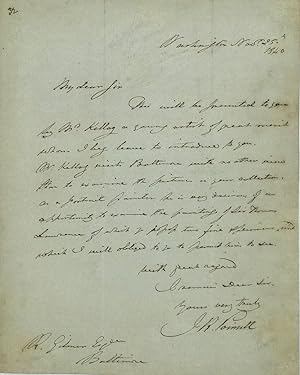 Washington Nov. 25th
1840
My dear Sir
This will be presented to you
by Mr Kellog a young artist of great merit
whom I beg leave to introduce to you.
Mr Kellog visits Baltimore with no other view
than to examine the pictures in your collection.
as a portrait painter he is very desirous of an
opportunity to examine the paintings of Sir Thomas
Lawrence of which you two fine specimens, and
which I will obliged to you to permit him to see.
with great regard
I remain Dear Sir
yours very truly
R. Gilmor Esqr
Baltimore